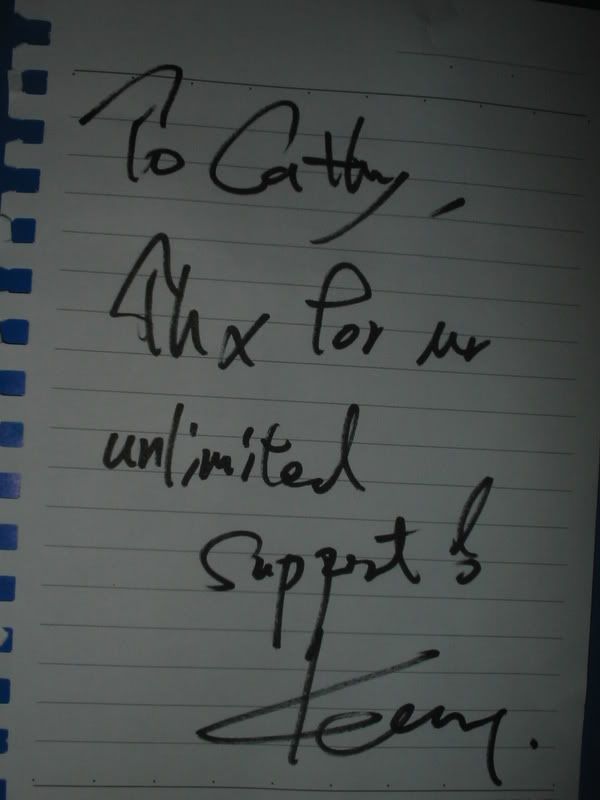 To Cathy,
Thx for ur
unlimited
support!